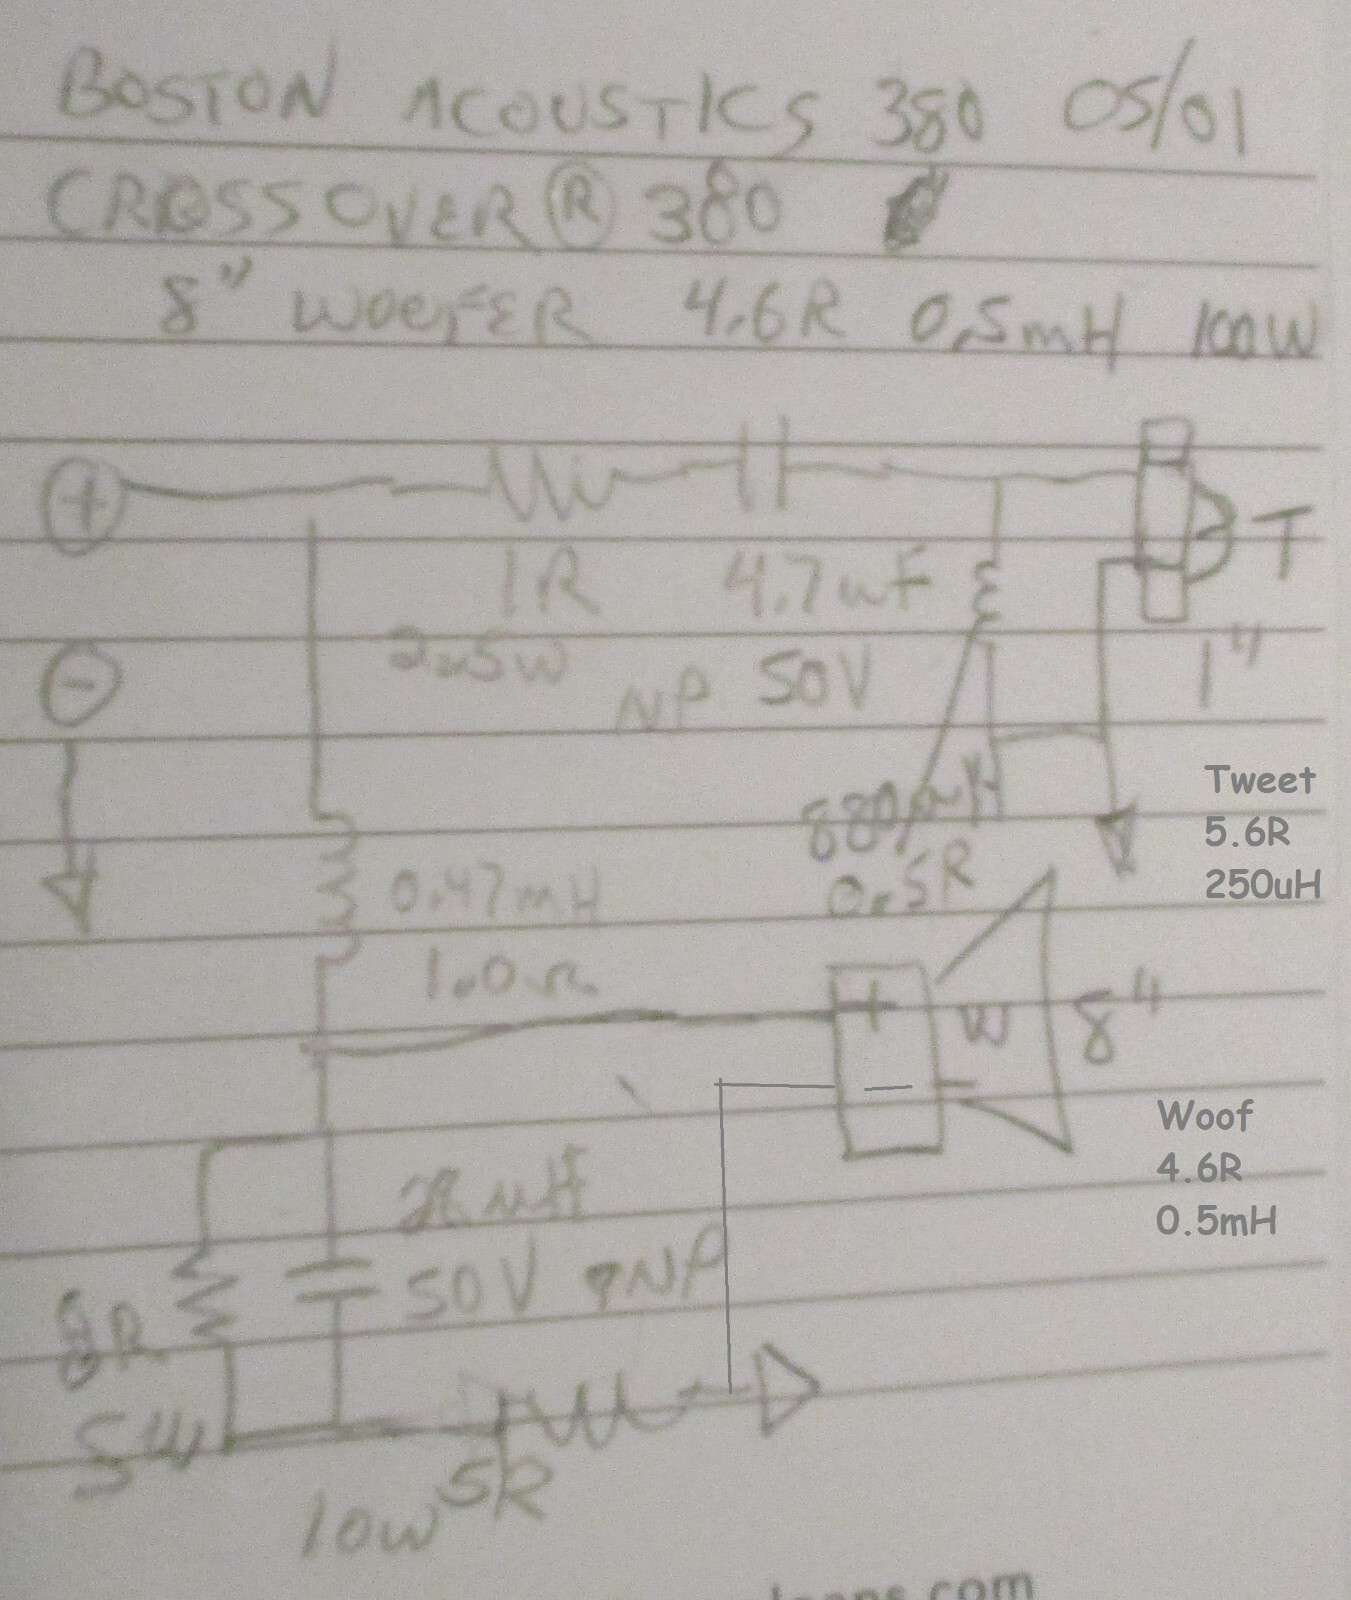 BOSTON ACOUSTICS 380 05/01
CROSSOVER Ⓡ 380
8" WOOFER 4.6R 0.5mH 100W
+
1R 4.7uF T
2.5W NP 50V 1"
-
Tweet
5.6R
250uH
880uH
0.5R
0.47mH
1.0R
+ W 8"
-
Woof
4.6R
0.5mH
50V NP
8R
5W
5R
10W
.com